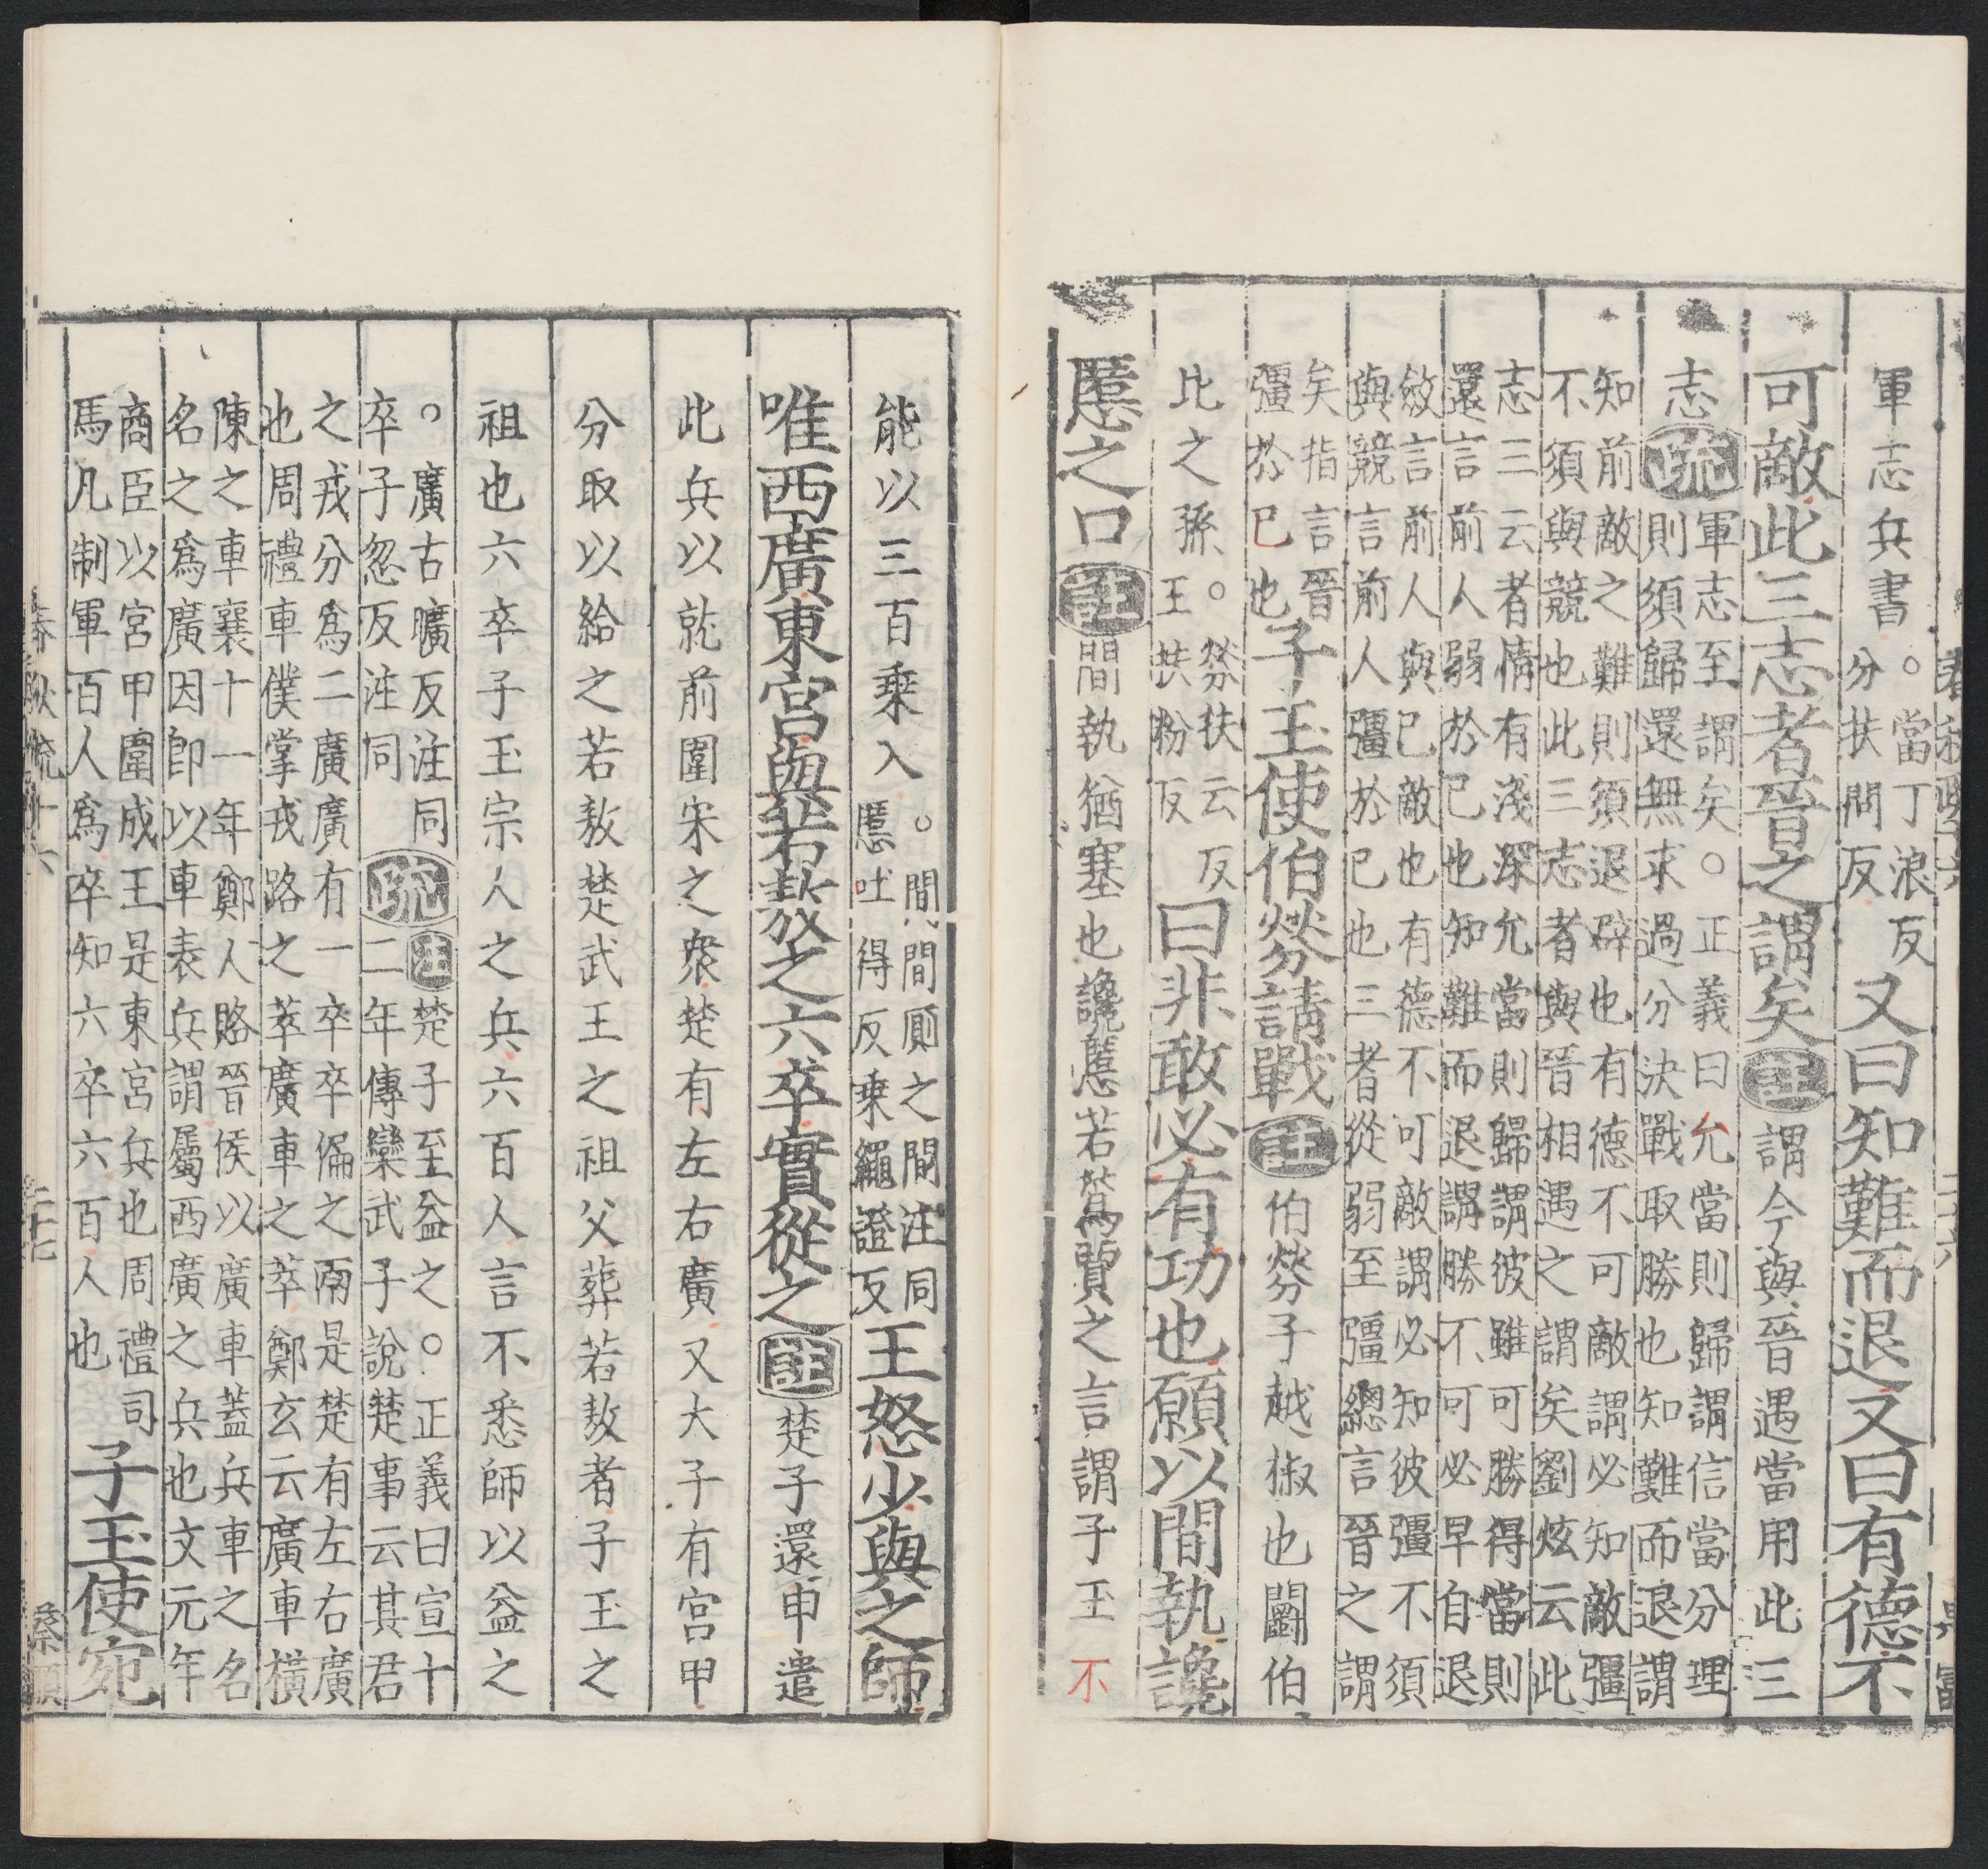 軍志兵書○當丁浪反
分扶問反又曰知難而退又曰有德不
可敵此三志者晉之謂矣註謂今與晉遇當用此三
志疏軍志至謂矣○正義曰允當則歸謂信當分理
則須歸還無求過分決戰取勝也知難而退謂
知前敵之難則須退辟也有德不可敵謂必知敵彊
不須與競也此三志者與晉相遇之謂矣劉炫云此
志三云者情有淺深允當則歸謂彼雖可勝得當則
還言前人弱於已也知難而退謂勝不可必早自退
斂言前人與已敵也有德不可敵謂必知彼彊不須
與競言前人彊於已也三者從弱至彊總言晉之謂
矣指言晉
彊於已也子玉使伯棼請戰註伯棼子越椒也鬬伯
比之孫○棼扶云反
王扶粉反曰非敢必有功也願以間執讒
慝之口註間執猶塞也讒慝若蒍賈之言謂子玉不
能以三百乗入○間間厠之間注同
慝吐得反乗繩證反王怒少與之師
唯西廣東宮與若敖之六卒實從之註楚子還申遣
此兵以就前圍宋之衆楚有左右廣又大子有宮甲
分取以給之若敖楚武王之祖父葬若敖者子玉之
祖也六卒子玉宗人之兵六百人言不悉師以益之
○廣古曠反注同
卒子忽反注同疏註楚子至益之○正義曰宣十
二年傳欒武子說楚事云其君
之戎分為二廣廣有一卒卒偏之兩是楚有左右廣
也周禮車僕掌戎路之萃廣車之萃鄭玄云廣車橫
陳之車襄十一年鄭人賂晉侯以廣車蓋兵車之名
名之爲廣因即以車表兵謂屬西廣之兵也文元年
商臣以宮甲圍成王是東宮兵也周禮司
馬凡制軍百人爲卒知六卒六百人也子玉使宛
春秋疏十六
二十七
蔡順